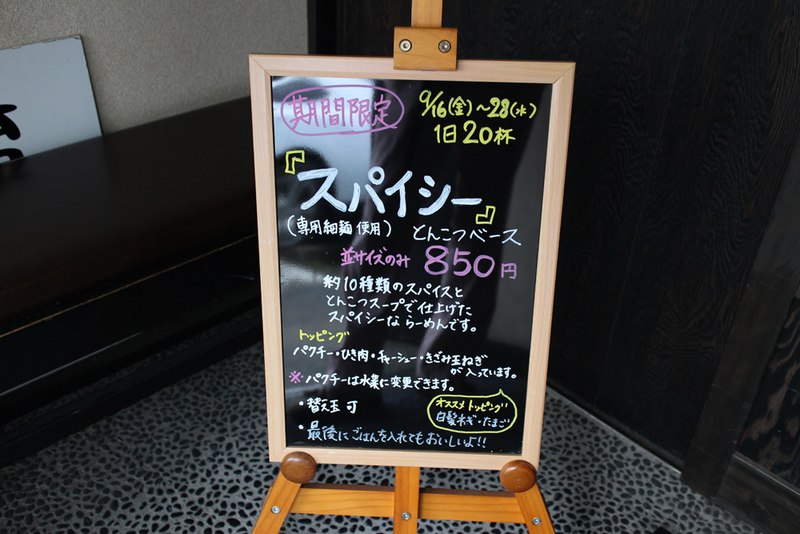 期間限定
9/16(金)～28(水)
1日20杯
『スパイシー』
(専用細麺使用)
とんこつベース
並サイズのみ 850円
約10種類のスパイスと
とんこつスープで仕上げた
スパイシーならーめんです。
トッピング
パクチー・ひき肉・チャーシュー・きざみ玉ねぎ
が入っています。
※パクチーは水菜に変更できます。
・替え玉 可
オススメトッピング
白髪ネギ・たまご
・最後にごはんを入れてもおいしいよ!!